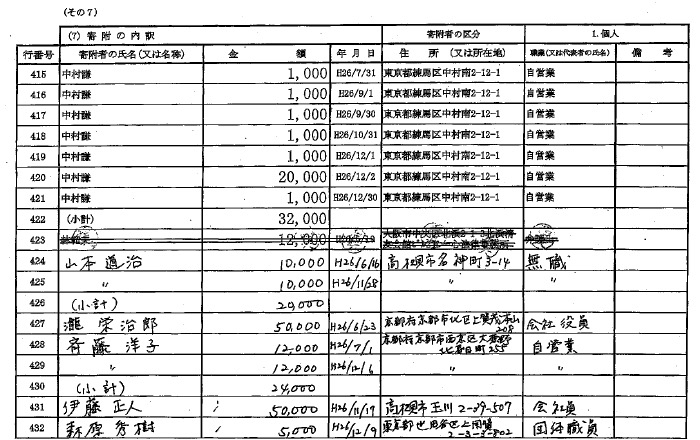 (その7)
(7) 寄附の内訳 寄附者の区分 1.個人
行番号 寄附者の氏名(又は名称) 金 額 年月日 住 所 (又は所在地) 職業(又は代表者の氏名) 備 考
415 中村謙 1,000 H26/7/31 東京都練馬区中村南2-12-1 自営業
416 中村謙 1,000 H26/9/1 東京都練馬区中村南2-12-1 自営業
417 中村謙 1,000 H26/9/30 東京都練馬区中村南2-12-1 自営業
418 中村謙 1,000 H26/10/31 東京都練馬区中村南2-12-1 自営業
419 中村謙 1,000 H26/12/1 東京都練馬区中村南2-12-1 自営業
420 中村謙 20,000 H26/12/2 東京都練馬区中村南2-12-1 自営業
421 中村謙 1,000 H26/12/30 東京都練馬区中村南2-12-1 自営業
422 (小計) 32,000
423 12,000
424 山本 道治 10,000 H26/6/16 高槻市名神町3-14 無職
425 〃 10,000 H26/11/28 〃 〃
426 (小計) 20,000
427 瀧 栄治郎 50,000 H26/6/23 京都府京都市北区上賀茂本山208 会社役員
428 斉藤 洋子 12,000 H26/7/1 京都府京都市西京区大原野北春日町255 自営業
429 〃 12,000 H26/12/6 〃 〃
430 (小計) 24,000
431 伊藤 正人 50,000 H26/11/17 高槻市玉川 2-29-507 会社員
432 萩原 秀樹 5,000 H26/12/9 東京都世田谷区上用賀2-3-3-802 団体職員